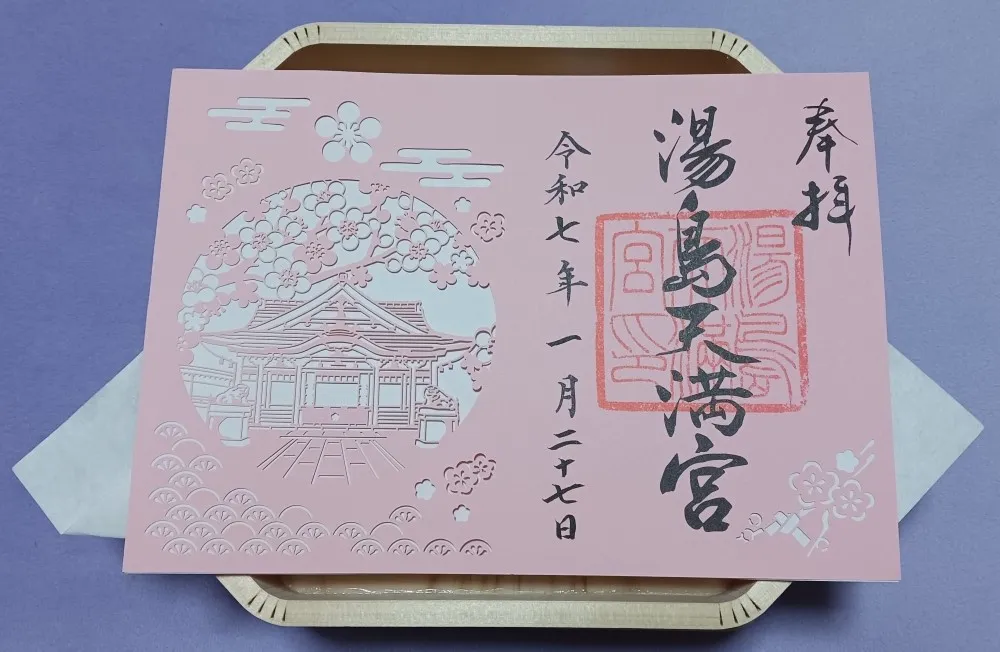 奉拝
湯島天満宮
令和七年一月二十七日